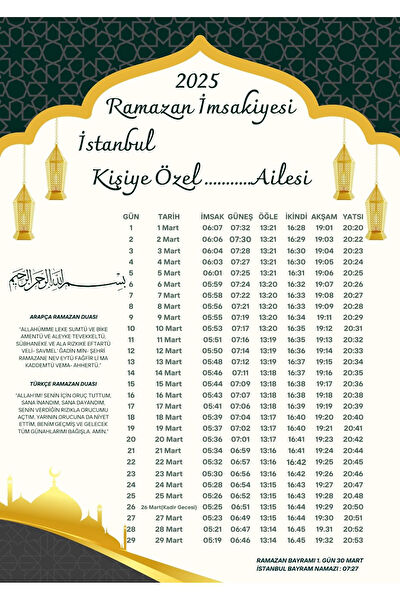 2025
Ramazan İmsakiyesi
İstanbul
Kişiye Özel..........Ailesi
GÜN TARİH İMSAK GÜNEŞ ÖĞLE İKİNDİ AKŞAM YATSI
1 1 Mart 06:07 07:32 13:21 16:28 19:01 20:20
2 2 Mart 06:06 07:30 13:21 16:29 19:03 20:22
3 3 Mart 06:04 07:28 13:21 16:30 19:04 20:23
4 4 Mart 06:03 07:27 13:21 16:30 19:05 20:24
5 5 Mart 06:01 07:25 13:21 16:31 19:06 20:25
6 6 Mart 05:59 07:24 13:20 16:32 19:07 20:26
7 7 Mart 05:58 07:22 13:20 16:33 19:08 20:27
8 8 Mart 05:56 07:21 13:20 16:33 19:09 20:28
9 9 Mart 05:55 07:19 13:20 16:34 19:11 20:29
10 10 Mart 05:53 07:17 13:20 16:35 19:12 20:31
11 11 Mart 05:51 07:16 13:19 16:35 19:13 20:32
12 12 Mart 05:50 07:14 13:19 16:36 19:14 20:33
13 13 Mart 05:48 07:12 13:19 16:37 19:15 20:34
14 14 Mart 05:46 07:11 13:18 16:37 19:16 20:35
15 15 Mart 05:44 07:09 13:18 16:38 19:17 20:36
16 16 Mart 05:43 07:07 13:18 16:38 19:18 20:38
17 17 Mart 05:41 07:06 13:18 16:39 19:19 20:39
18 18 Mart 05:39 07:04 13:17 16:39 19:20 20:40
19 19 Mart 05:37 07:02 13:17 16:40 19:21 20:41
20 20 Mart 05:36 07:01 13:17 16:41 19:23 20:42
21 21 Mart 05:34 06:59 13:16 16:41 19:24 20:44
22 22 Mart 05:32 06:57 13:16 16:42 19:25 20:45
23 23 Mart 05:30 06:56 13:16 16:42 19:26 20:46
24 24 Mart 05:28 06:54 13:15 16:43 19:27 20:47
25 25 Mart 05:26 06:52 13:15 16:43 19:28 20:48
26 26 Mart(Kadir Gecesi) 05:25 06:51 13:15 16:44 19:29 20:50
27 27 Mart 05:23 06:49 13:15 16:44 19:30 20:51
28 28 Mart 05:21 06:47 13:14 16:45 19.31 20:52
29 29 Mart 05:19 06:46 13:14 16.45 19:32 20:53
بسم الله الرحمن الرحيم
ARAPÇA RAMAZAN DUASI
"ALLAHÜMME LEKE SUMTÜ VE BİKE
AMENTÜ VE ALEYKE TEVEKKELTÜ.
SÜBHANEKE VE ALA RIZKIKE EFTARTÜ
VELİ- SAVMEL' ĞADİN MİN- ŞEHRİ
RAMAZANE NEV EYTÜ FAĞFİR Lİ MA
KADDEMTÜ VEMA- AHHERTÜ."
TÜRKÇE RAMAZAN DUASI
"ALLAH'IM! SENİN İÇİN ORUÇ TUTTUM,
SANA İNANDIM, SANA DAYANDIM,
SENİN VERDİĞİN RIZIKLA ORUCUMU
AÇTIM, YARININ ORUCUNA DA NİYET
ETTİM, BENİM GEÇMİŞ VE GELECEK
TÜM GÜNAHLARIMI BAĞIŞLA. AMİN."
RAMAZAN BAYRAMI 1. GÜN 30 MART
İSTANBUL BAYRAM NAMAZI : 07:27